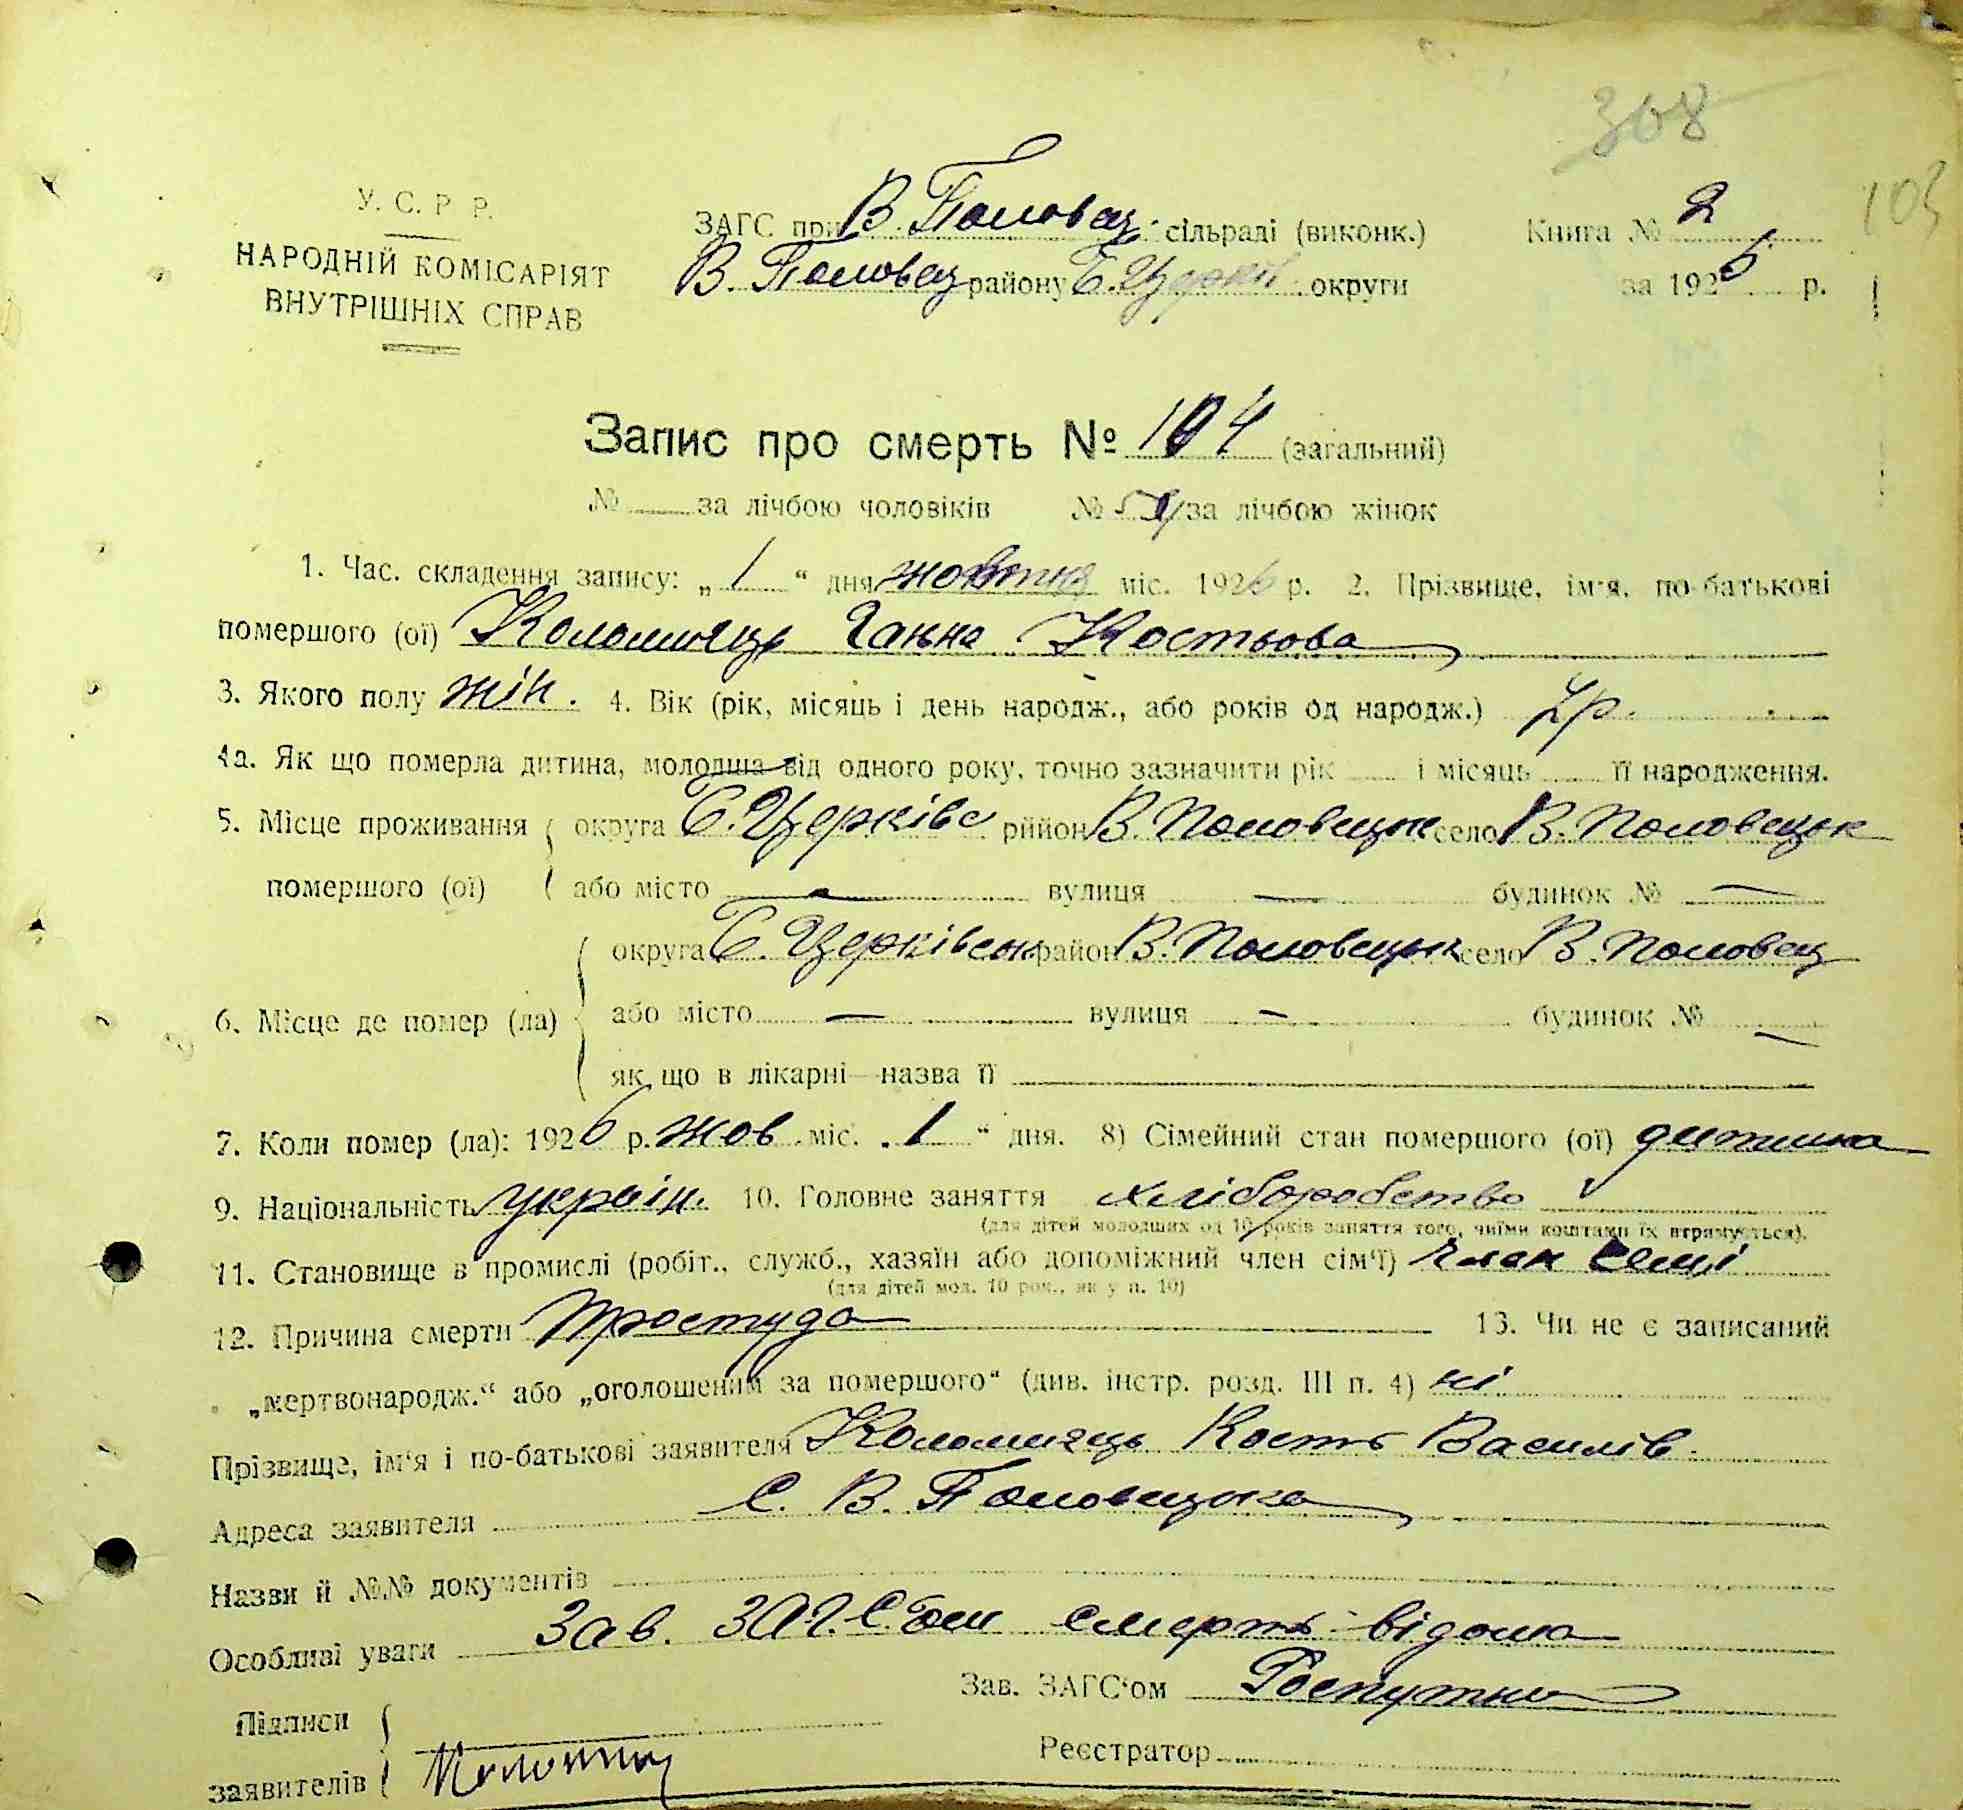 308
103
У. С. Р. Р.
НАРОДНІЙ КОМІСАРІЯТ
ВНУТРІШНІХ СПРАВ
ЗАГС при В. Половец. сільраді (виконк.)
Книга № 2
В. Половец району Б. Церків округи
за 1926 р.
Запис про смерть № 104 (загальний)
№ за лічбою чоловіків № за лічбою жінок
1. Час. складення запису: „ 1 “ дня жовтня міс. 1926 р. 2. Прізвище, ім'я, по-батькові
помершого (ої) Коломиець Ганна Костьова
3. Якого полу жін. 4. Вік (рік, місяць і день народж., або років од народж.) 2 р.
4а. Як що померла дитина, молодша від одного року, точно зазначити рік і місяць її народження.
5. Місце проживання округа Б. Церківс рйійон В. Половецьк село В. Половецьк
помершого (ої) або місто — вулиця — будинок № —
округа Б. Церківськ район В. Половецьк село В. Половец
6. Місце де помер (ла) або місто — вулиця — будинок № —
як що в лікарні—назва її
7. Коли помер (ла): 1926 р. жов міс. „ 1 “ дня. 8) Сімейний стан помершого (ої) дитина
9. Національність україн. 10. Головне заняття хліборобство
(для дітей молодших од 10 років заняття того, чиїми коштами їх втримується).
11. Становище в промислі (робіт., служб., хазяїн або допоміжний член сім'ї) член семі
(для дітей мол. 10 рок., як у п. 10)
12. Причина смерти простуда 13. Чи не є записаний
„мертвонародж.“ або „оголошеним за помершого“ (див. інстр. розд. III п. 4) ні
Прізвище, ім'я і по-батькові заявителя Коломиець Кость Василів.
Адреса заявителя с. В. Половецька
Назви й №№ документів
Особливі уваги Зав. ЗАГС'ом смерть відома
Зав. ЗАГС'ом Роспутня
Підписи
заявителів
Реєстратор